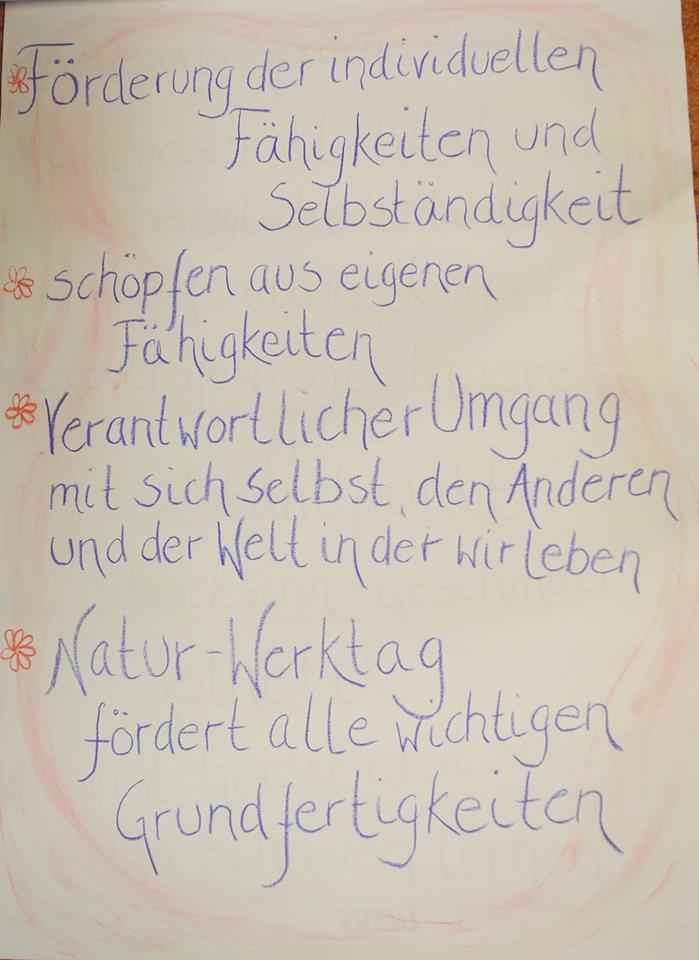 Förderung der individuellen
Fähigkeiten und
Selbständigkeit
schöpfen aus eigenen
Fähigkeiten
Verantwortlicher Umgang
mit sich selbst, den Anderen
und der Welt in der wir leben
Natur-Werktag
fördert alle wichtigen
Grundfertigkeiten